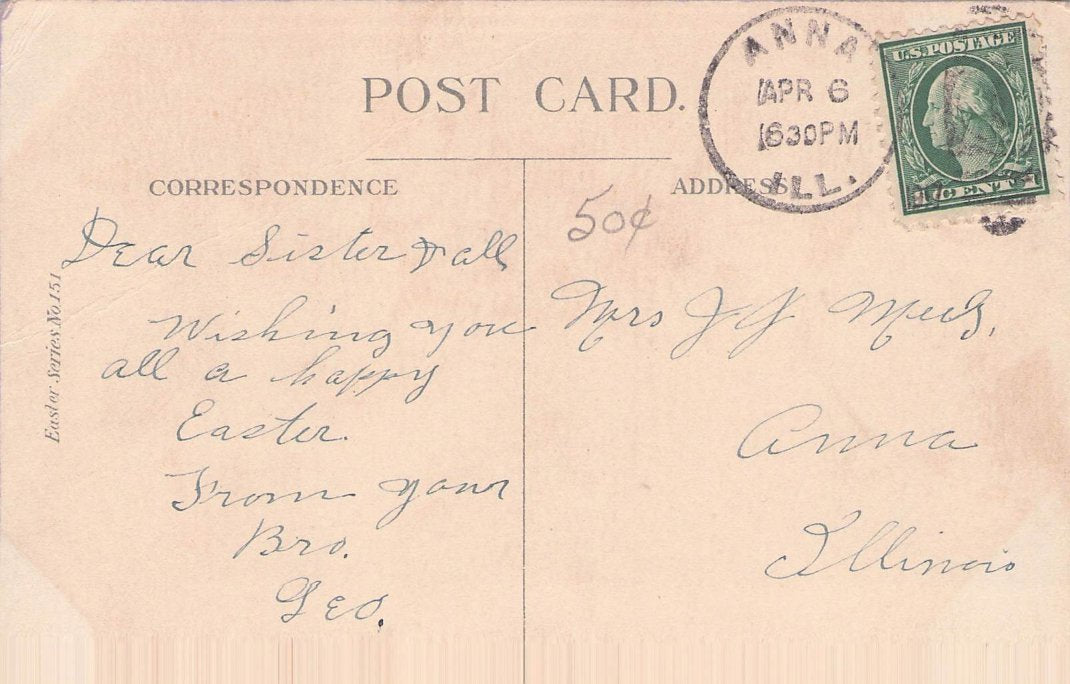 POST CARD.
CORRESPONDENCE
ADDRESS
ANNA
APR 6
630PM
ILL.
U.S. POSTAGE
CENT
50¢
Easter Series No. 151
Dear Sister & all
Wishing you
all a happy
Easter.
From your
Bro.
Geo.
Mrs J J
Anna
Illinois